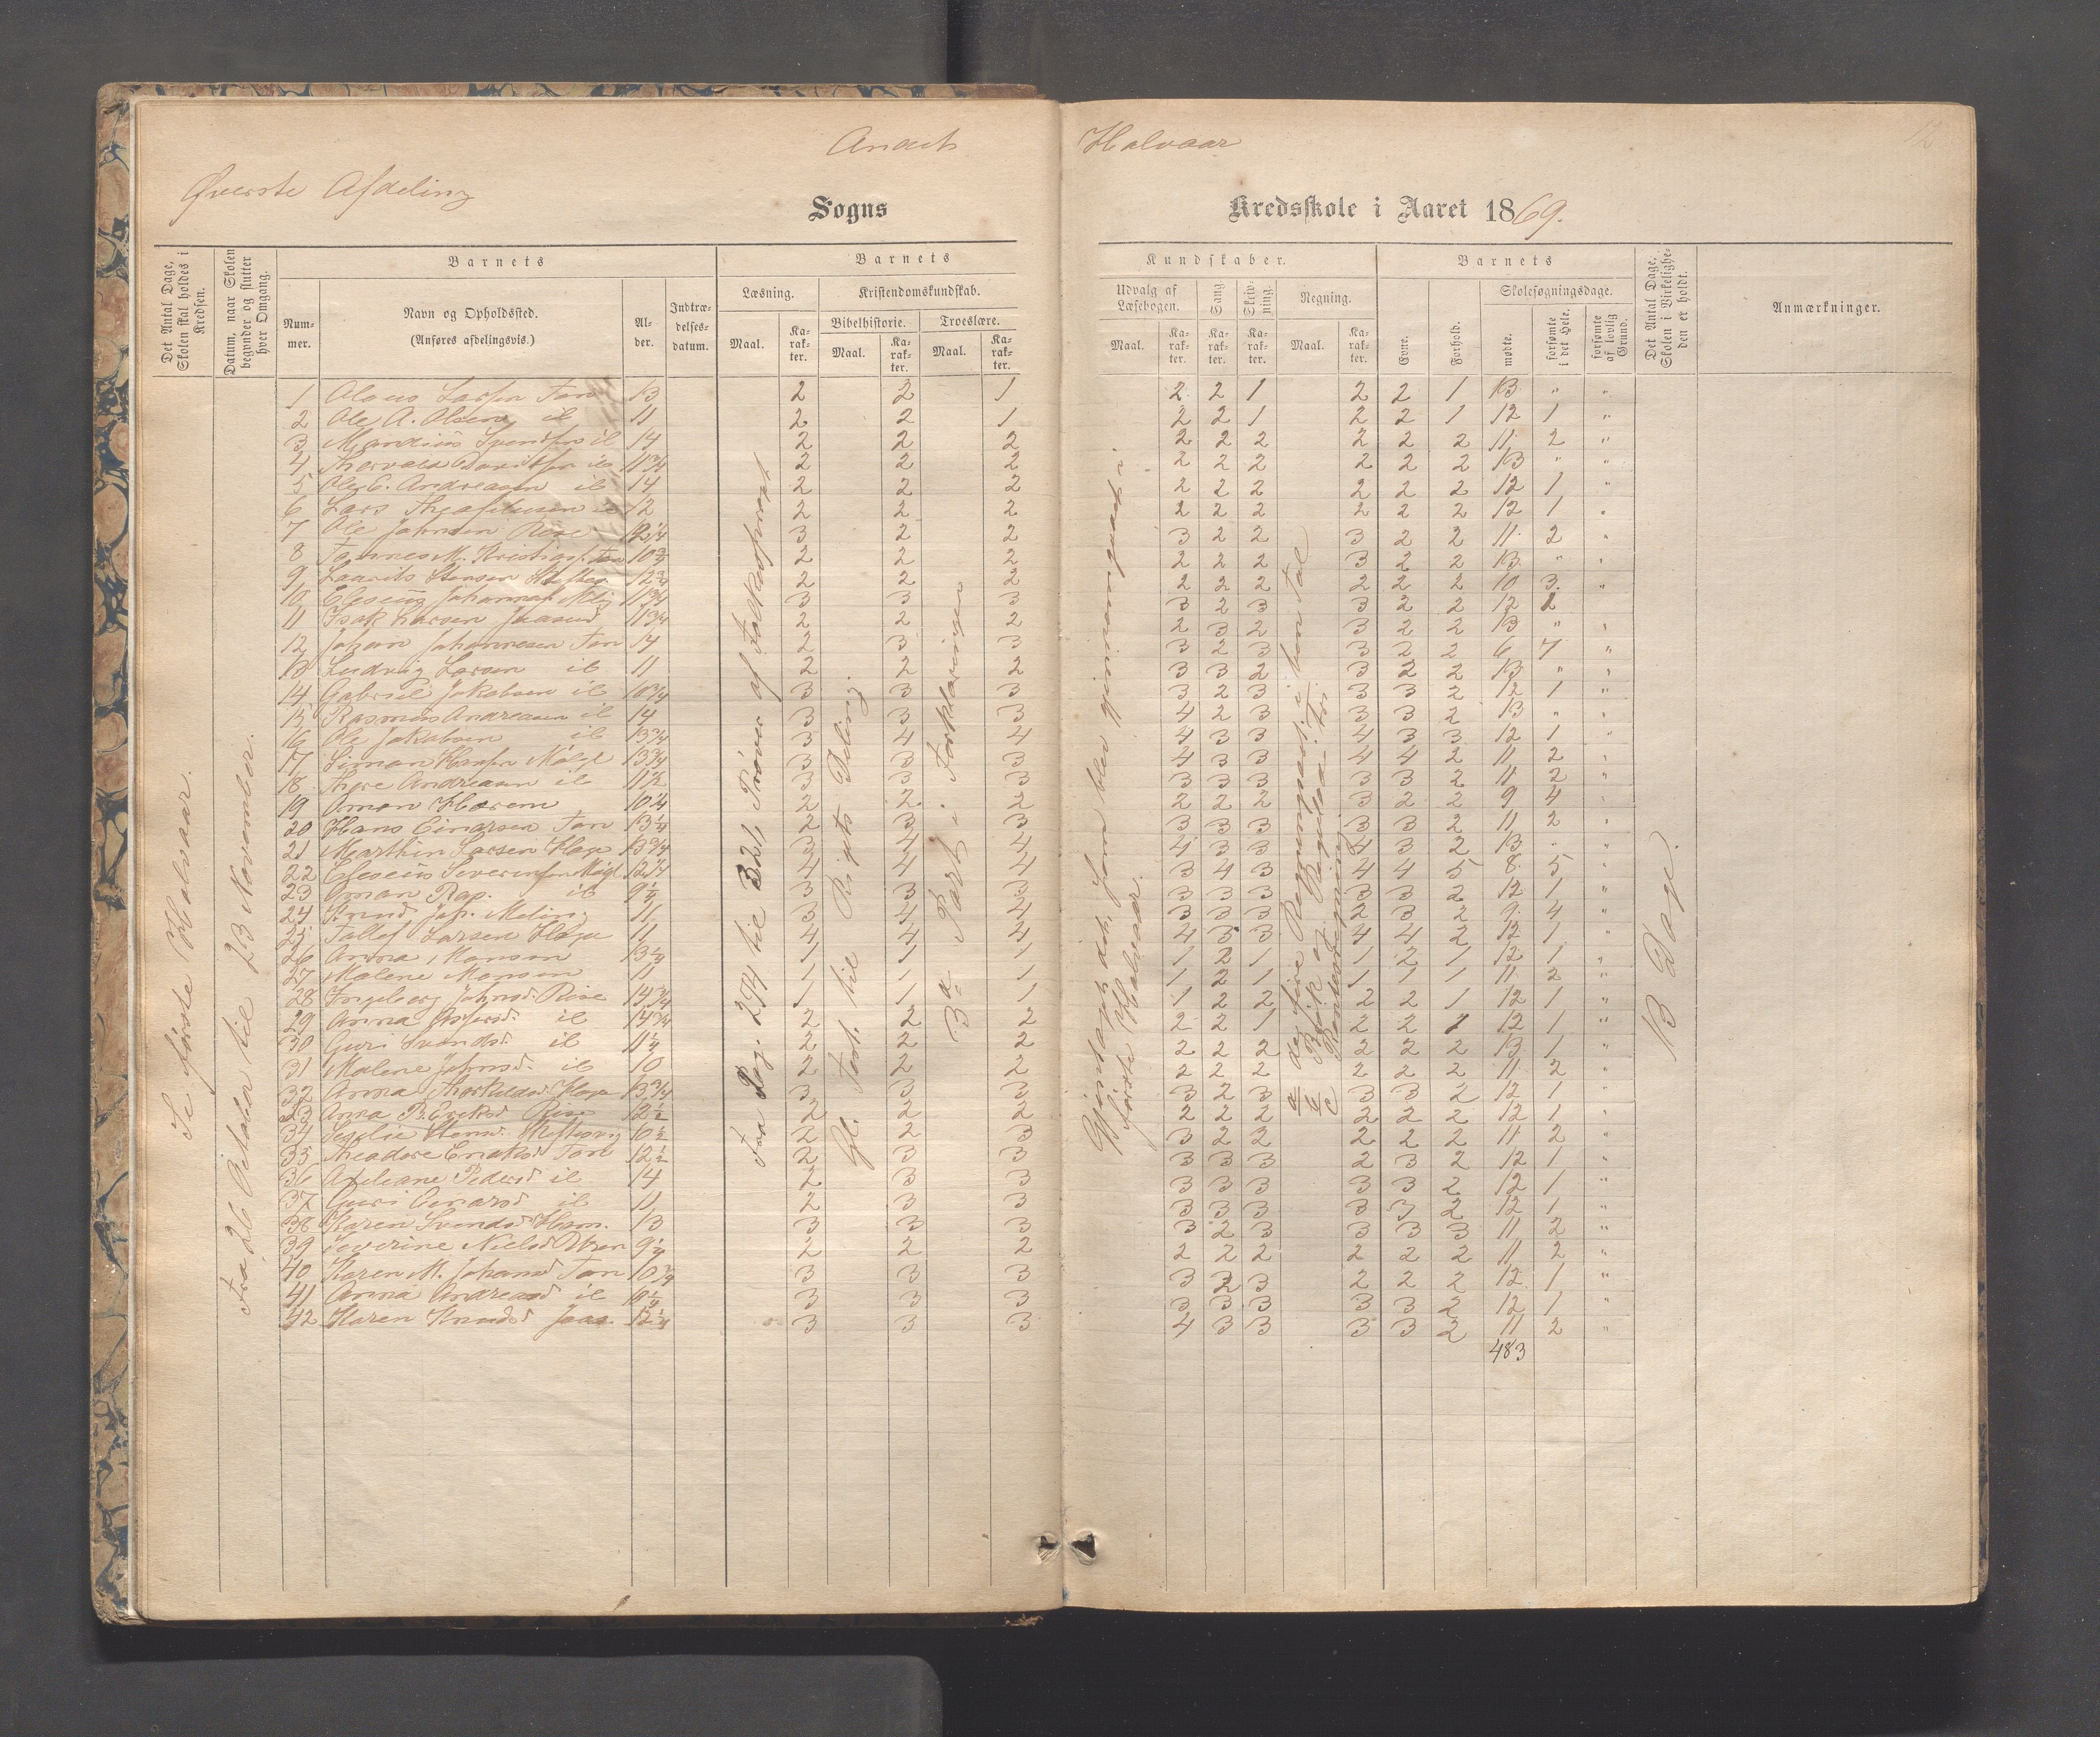 Andet Halvaar 12
Øverste Afdeling
Sogns Kredsskole i Aaret 1869.
Det Antal Dage, Skolen skal holdes i Kredsen.
Datum, naar Skolen begynder og slutter hver Omgang.
Barnets
Nummer.
Navn og Opholdssted.
(Anføres afdelingsvis.)
Alder.
Indtrædelsesdatum.
Barnets
Læsning.
Maal. Karakter.
Kristendomskundskab.
Bibelhistorie. Troeslære.
Maal. Karakter. Maal. Karakter.
Kundskaber.
Udvalg af Læsebogen. Sang. Skrivning. Regning.
Maal. Karakter. Karakter. Karakter. Maal. Karakter.
Barnets
Evne. Forhold.
Skolesøgningsdage.
mødte. forsømte i det Hele. forsømte af lovlig Grund.
Det Antal Dage, Skolen i Virkeligheden er holdt.
Anmærkninger.
Se første Halvaar.
Fra 26 Oktober til 23 November.
Fra Pag. 274 til 321, Prøver af Folkesproget
Gl. Test. til Rigets Deling.
3die Part i Forklaringen
Gjentaget det, som blev gjennemgaaet i første Halvaar.
a de fire Regningsart. i ben. Tal
b Brøk og Reguladetri
c Renteregning
13 Dage.
1 Olaus Larsen Tan 13 2 2 1 2 2 1 2 2 1 13 " "
2 Ole A. Olsen ib 11 2 2 1 2 2 1 2 2 1 12 1 "
3 Mandius Svendsen ib 14 2 2 2 2 2 2 2 2 2 11 2 "
4 Thorvald Davidsen ib 11 3/4 2 2 2 2 2 2 2 2 2 13 " "
5 Ole C. Andreasen ib 14 2 2 2 2 2 2 2 2 2 12 1 "
6 Lars ib 12 2 2 2 2 2 2 2 2 2 12 1 "
7 Ole Johnsen Risø 12 1/4 3 2 2 3 2 2 3 2 2 11 2 "
8 Tan 10 3/4 2 2 2 2 2 2 3 2 2 13 " "
9 Laurits Stensen 12 3/4 2 2 2 2 2 2 2 2 2 10 3 "
10 Eleseus 11 3/4 3 3 3 3 2 3 3 2 2 12 1
11 Isak Larsen Jaasund 11 3/4 2 2 2 2 3 2 3 2 2 13 " "
12 Johan Johannesen Tan 14 2 3 3 3 2 3 3 2 2 6 7 "
13 Ludvig Larsen ib 11 2 2 2 3 3 2 3 2 2 13 " "
14 Gabriel Jakobsen ib 10 3/4 3 3 3 3 2 3 3 3 2 12 1 "
15 Rasmus Andreasen ib 14 3 3 3 4 2 3 3 3 2 13 " "
16 Ole Jakobsen ib 13 3/4 3 4 4 4 3 3 4 3 3 12 1 "
17 Simon Hansen 13 3/4 3 3 3 4 3 3 4 4 2 11 2 "
18 Thore Andreasen ib 11 1/2 3 3 3 3 3 3 3 3 2 11 2 "
19 Oman Harem 10 1/4 2 2 2 2 2 2 3 2 2 9 4 "
20 Hans Einarsen Tan 13 1/4 2 3 3 3 3 3 3 3 2 11 2 "
21 Marthin Larsen Haga 13 3/4 3 4 4 4 3 3 4 3 2 13 " "
22 Eleseus Severinsen 12 1/4 4 4 4 3 4 3 4 4 5 8 5 "
23 Oman Rap. ib 9 1/4 3 3 3 3 3 3 3 3 2 12 1 "
24 Knud Joh. Meling 11 3 4 4 3 3 3 2 3 2 9 4 "
25 Tollef Larsen Haga 11 4 4 4 4 3 3 4 4 2 12 1 "
26 Anna Monsen 13 1/4 1 1 1 1 2 1 1 2 1 12 1 "
27 Malene Monsen 11 1 1 1 1 2 1 1 1 1 11 2 "
28 Ingeborg Johnsd. Risø 14 3/4 1 1 1 1 2 2 2 2 1 12 1 "
29 Anna ib 14 3/4 2 2 2 2 2 1 2 2 1 12 1 "
30 Guri Svendsd. ib 11 1/4 2 2 2 2 2 2 2 2 2 13 1 "
31 Malene Johnsd. ib 10 2 2 2 2 2 2 2 2 2 11 2 "
32 Anna Thorkildsd. Haga 13 3/4 3 3 3 3 2 3 3 3 2 12 1 "
33 Anna B. Eriksd Risø 12 1/2 2 2 2 2 2 2 2 2 2 12 1 "
34 Stensd. 10 1/2 2 2 3 3 2 2 2 2 2 11 2 "
35 Theadore Eriksd. Tan 12 1/2 2 3 3 3 3 3 2 3 2 12 1 "
36 Pedersd ib 14 2 3 3 3 3 3 3 3 2 12 1 "
37 Guri Einarsd ib 11 2 3 3 3 3 3 3 3 2 12 1 "
38 Karen Svendsd 13 3 3 3 3 2 3 3 3 3 11 2 "
39 Severine Nielsd 9 1/4 2 2 2 2 2 2 2 2 2 11 2 "
40 Karen M. Johansd Tan 10 3/4 3 3 3 3 2 3 2 2 2 12 1 "
41 Anna Andreasd ib 3 3 3 3 3 3 3 3 2 12 1 "
42 Karen Knudsd Jaas. 12 1/4 3 3 3 4 3 3 3 3 2 11 2 "
483